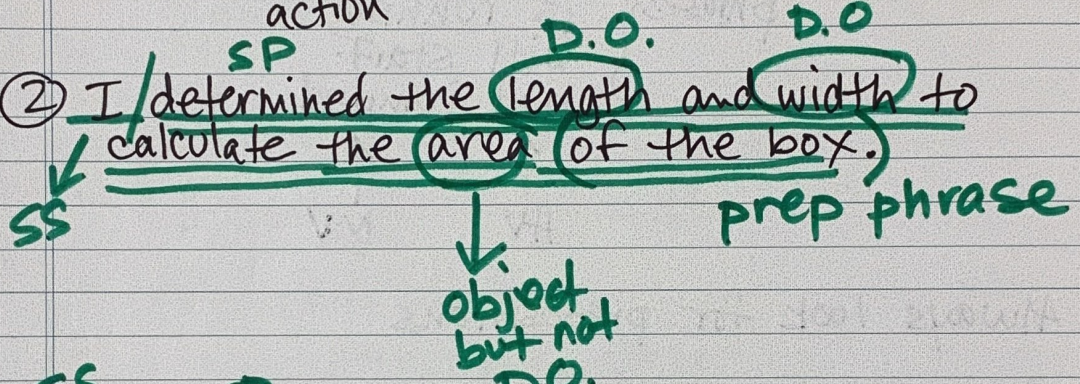 action
SP D.O. D.O
② I/determined the length and width to
calculate the area (of the box.)
SS prep phrase
object
but not
D.O.